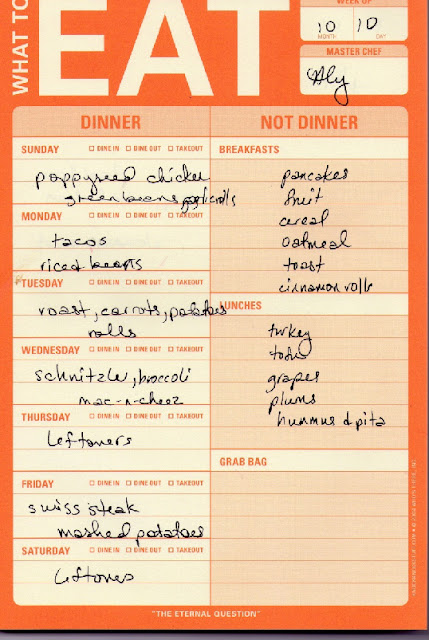 WHAT TO
EAT
WEEK OF
10 10
MONTH DAY
MASTER CHEF
Aly
DINNER
SUNDAY □ DINE IN □ DINE OUT □ TAKEOUT
poppyseed chicken
green beans, rolls
MONDAY □ DINE IN □ DINE OUT □ TAKEOUT
tacos
rice & beans
TUESDAY □ DINE IN □ DINE OUT □ TAKEOUT
roast, carrots, potatoes
rolls
WEDNESDAY □ DINE IN □ DINE OUT □ TAKEOUT
schnitzle, broccoli
mac-n-cheez
THURSDAY □ DINE IN □ DINE OUT □ TAKEOUT
leftovers
FRIDAY □ DINE IN □ DINE OUT □ TAKEOUT
swiss steak
mashed potatoes
SATURDAY □ DINE IN □ DINE OUT □ TAKEOUT
leftovers
NOT DINNER
BREAKFASTS
pancakes
fruit
cereal
oatmeal
toast
cinnamon rolls
LUNCHES
turkey
grapes
plums
hummus & pita
GRAB BAG
"THE ETERNAL QUESTION"